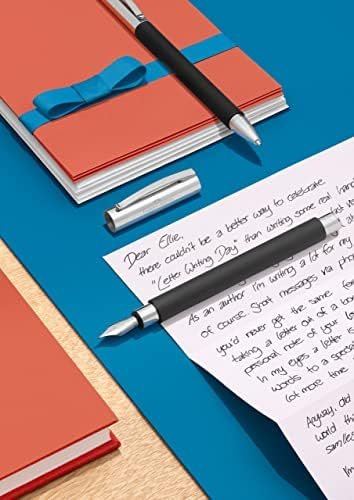 Dear Ellie,
there couldn't be a better way to celebrate
"Letter Writing Day" than writing some real hand
As an author I'm writing a lot for my
of course. Short messages via phon
you'd never get the same fe
taking a letter out of a bo
personal note of your lo
In my eyes a letter is
words to a special
lot more time
Anyway, did
world thi
I'm